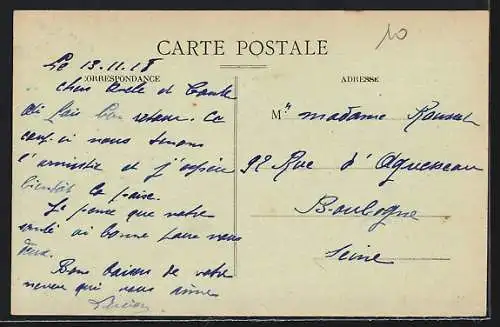 10
CARTE POSTALE
Le 13.11.18
CORRESPONDANCE
ADRESSE
Cher Oncle et Tante
fais bon retour. Ce
nous tenons
l'armistice et j'espère
bientôt la paix.
Je pense que votre
santé bonne pour vous
deux.
Bons baisers de votre
neveu qui vous aime
M madame
92 Rue d'Aguesseau
Boulogne
Seine